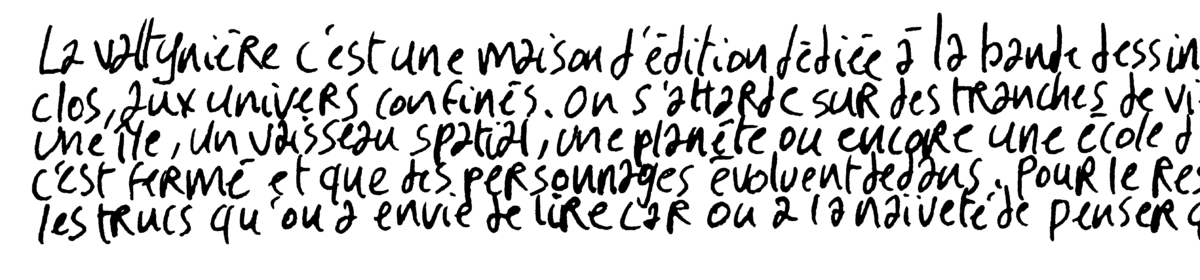 La valtynière c'est une maison d'édition dédiée à la bande dessin
clos, aux univers confinés. On s'attarde sur des tranches de vi
une île, un vaisseau spatial, une planète ou encore une école d
c'est fermé et que des personnages évoluent dedans. Pour le res
les trucs qu'on a envie de lire car on a la naïveté de penser q